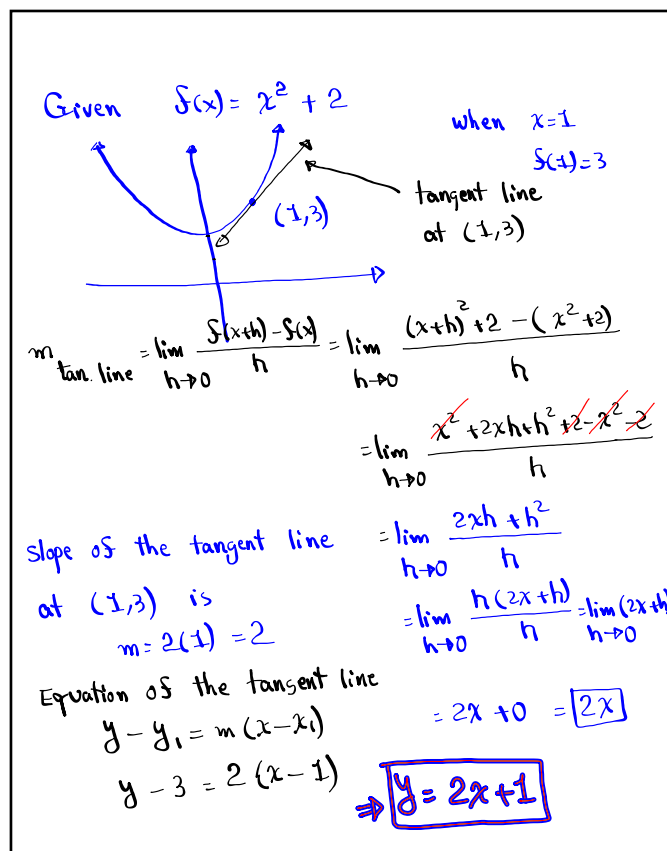 Given f(x) = x² + 2
when x=1
f(1)=3
(1,3)
tangent line
at (1,3)
m tan. line = lim h→0 (f(x+h) - f(x))/h = lim h→0 ((x+h)² + 2 - (x² + 2))/h
= lim h→0 (x² + 2xh + h² + 2 - x² - 2)/h
= lim h→0 (2xh + h²)/h
= lim h→0 h(2x+h)/h = lim h→0 (2x+h)
= 2x + 0 = 2x
Slope of the tangent line
at (1,3) is
m = 2(1) = 2
Equation of the tangent line
y - y₁ = m(x - x₁)
y - 3 = 2(x - 1)
⇒ y = 2x + 1